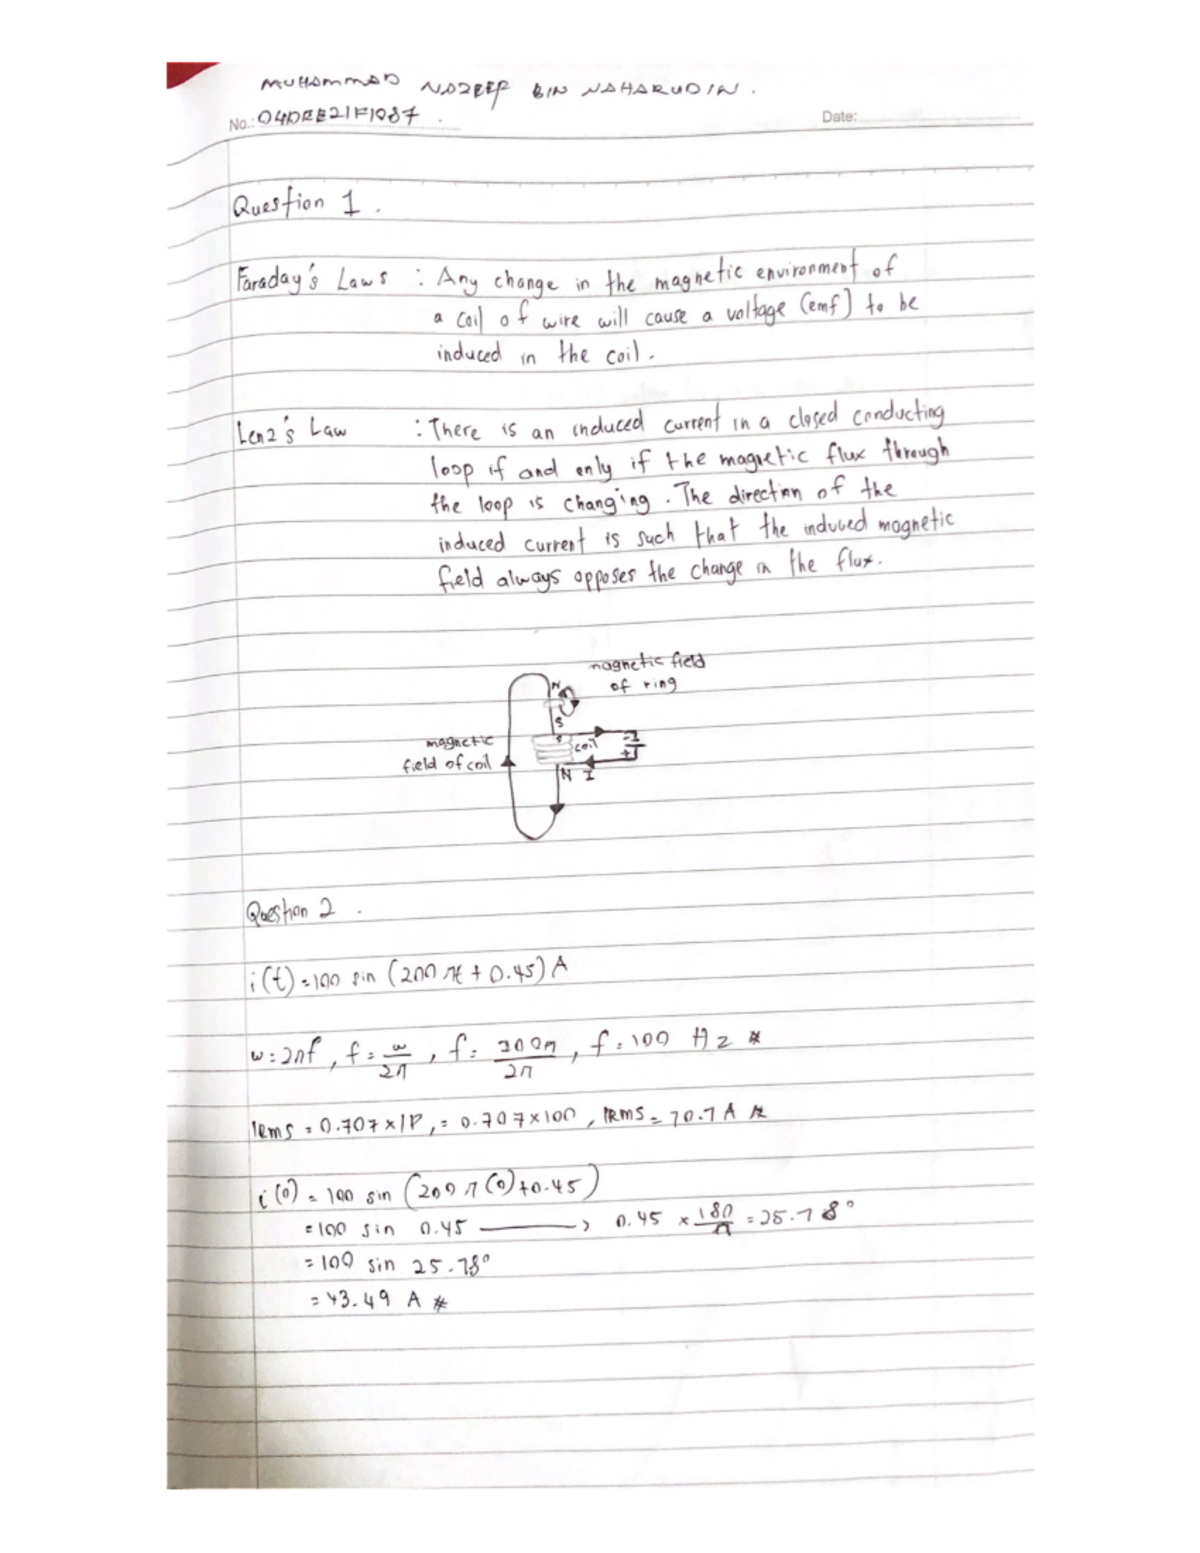 MUHAMMAD NAZEEP BIN NAHARUDIN.
No.: 04DEE21F1087 . Date:
Question 1 .
Faraday's Laws : Any change in the magnetic environment of
a coil of wire will cause a voltage (emf) to be
induced in the coil.
Lenz's Law : There is an induced current in a closed conducting
loop if and only if the magnetic flux through
the loop is changing. The direction of the
induced current is such that the induced magnetic
field always opposes the change in the flux.
magnetic field
of ring
N
S
S
magnetic
field of coil
coil
-
+
N I
Question 2 .
i(t) = 100 sin (200πt + 0.45) A
w = 2πf , f = w/2π , f = 200π/2π , f = 100 Hz *
IRMS = 0.707 × IP , = 0.707 × 100 , IRMS = 70.7 A *
i(0) = 100 sin (200π(0) + 0.45)
= 100 sin 0.45 → 0.45 × 180/π = 25.78°
= 100 sin 25.78°
= 43.49 A *